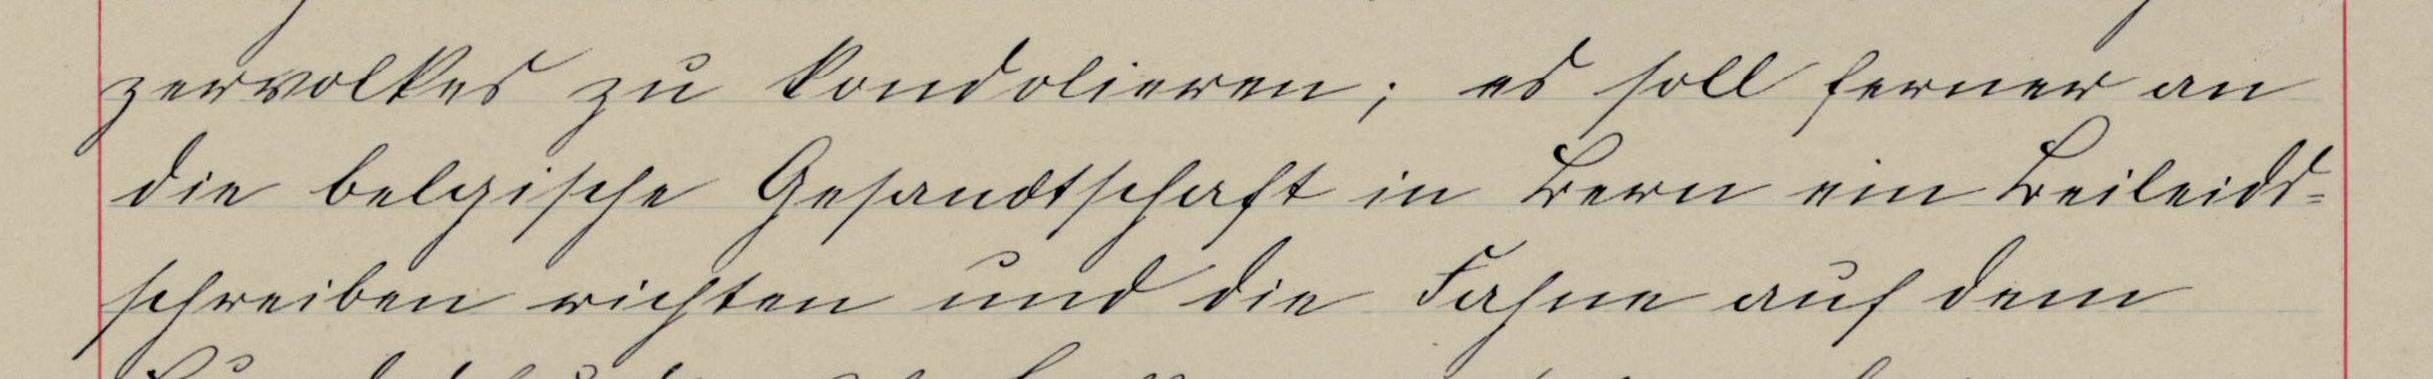 zervolkes zu kondolieren; es soll ferner an
die belgische Gesandtschaft in Bern ein Beileids-
schreiben richten und die Fahne auf dem